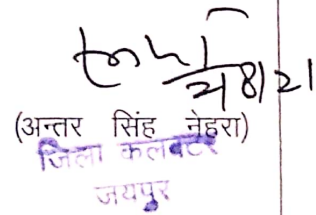 2/8/21
(अन्तर सिंह नेहरा)
जिला कलक्टर
जयपुर